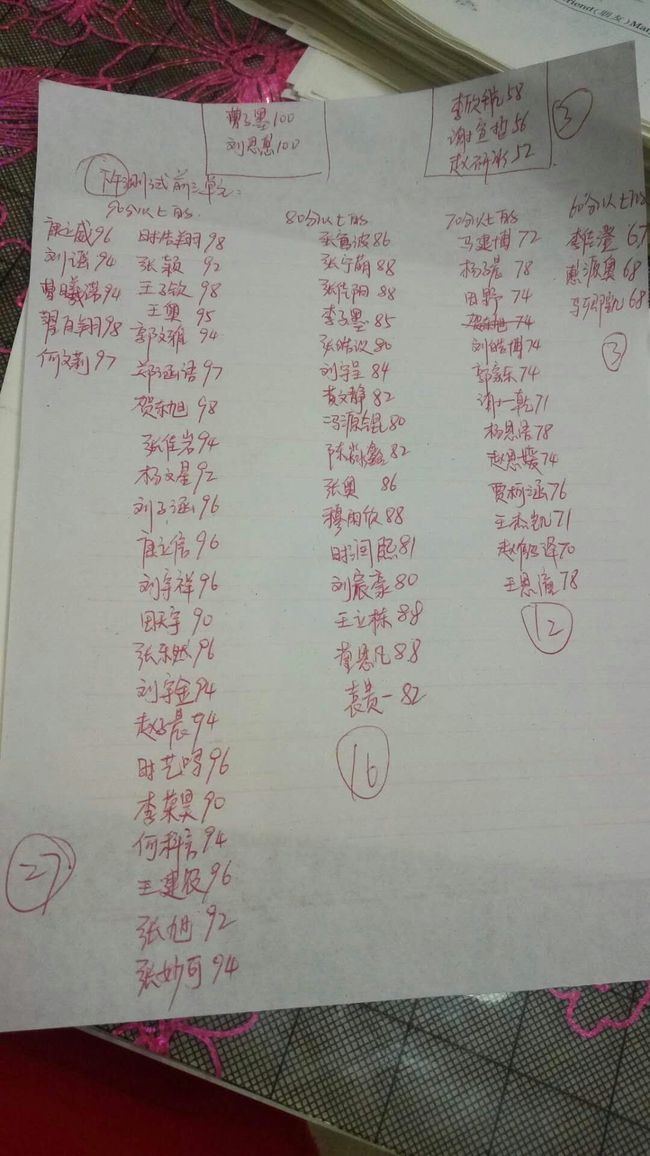 friend(朋友)Mar
曹子墨100
刘思思100
李欣锐58
谢宜哲56
赵研彬52
③
下午测试前三单元:
90分以上的
80分以上的
70分以上的
60分以上的
唐立威96
刘涵94
曹曦儒94
翟自翔98
何文莉97
时浩翔98
张颖 92
王子钦98
王奥 95
郭文雅94
郑涵语97
贺东旭98
张佳岩94
杨文星92
刘子涵96
唐立信96
刘宇祥96
田天宇90
张东然96
刘宇金94
赵子晨94
时艺鸣96
李荣昊90
何科言94
王建设96
张旭 92
张妙可94
27
张寅波86
张宁萌88
张佳阳88
李子墨85
张皓议80
刘宇呈84
袁文静82
冯源锟80
陈焱鑫82
张奥 86
穆雨欣88
时润熙81
刘宸豪80
王立栋88
董恩凡88
袁贵一82
16
马建博72
杨子晨78
田野 74
贺东旭74
刘皓博74
郭家乐74
谢一乾71
杨思浩78
赵思媛74
贾柯涵76
王杰凯71
赵佰泽70
王思涵78
12
李佳澄 67
68
68
③